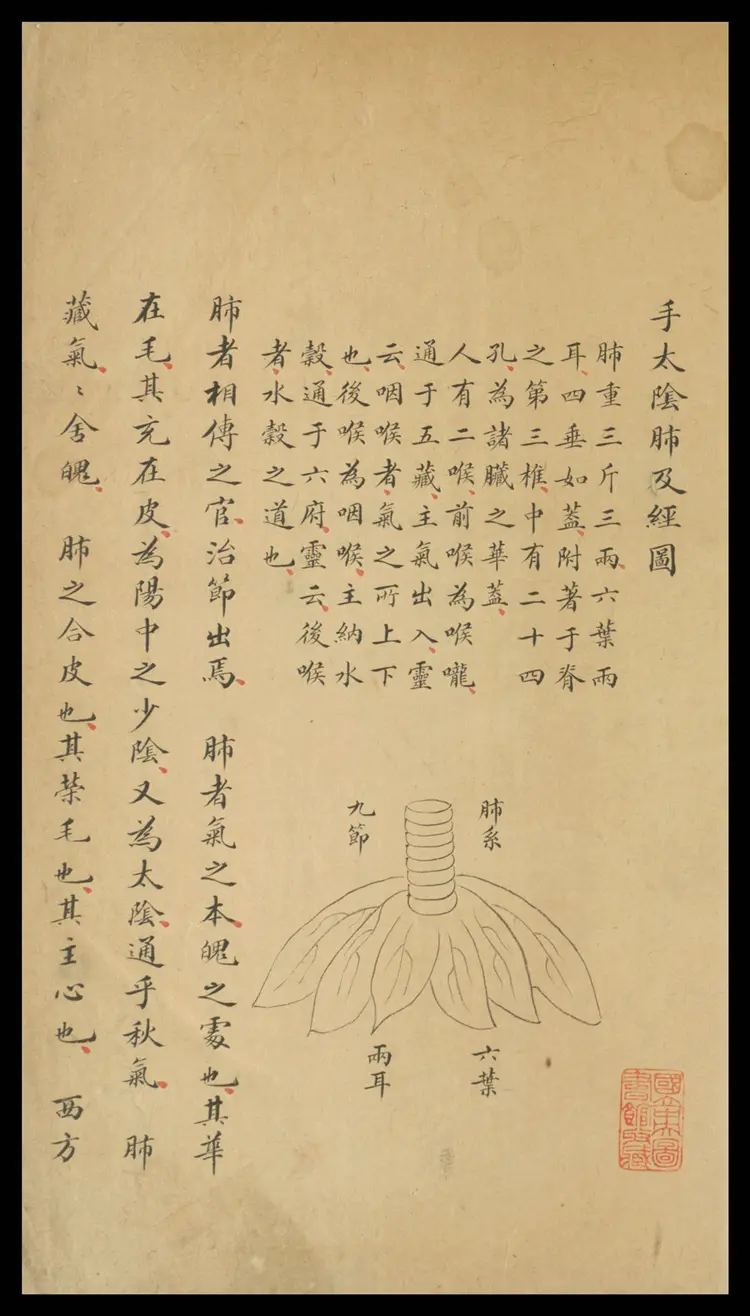 手太陰肺及經圖
肺重三斤三兩、六葉兩
耳、四垂如蓋、附著于脊
之第三椎、中有二十四
孔、為諸臟之華蓋、
人有二喉、前喉為喉嚨、
通于五藏、主氣出入、靈
云、咽喉者、氣之所上下
也、後喉為咽喉、主納水
穀、通于六府、靈云、後喉
者、水穀之道也、
肺系
九節
六葉
兩耳
肺者相傳之官、治節出焉、 肺者氣之本、魄之處也、其華
在毛、其充在皮、為陽中之少陰、又為太陰、通乎秋氣、 肺
藏氣、〻舍魄、 肺之合皮也、其榮毛也、其主心也、 西方